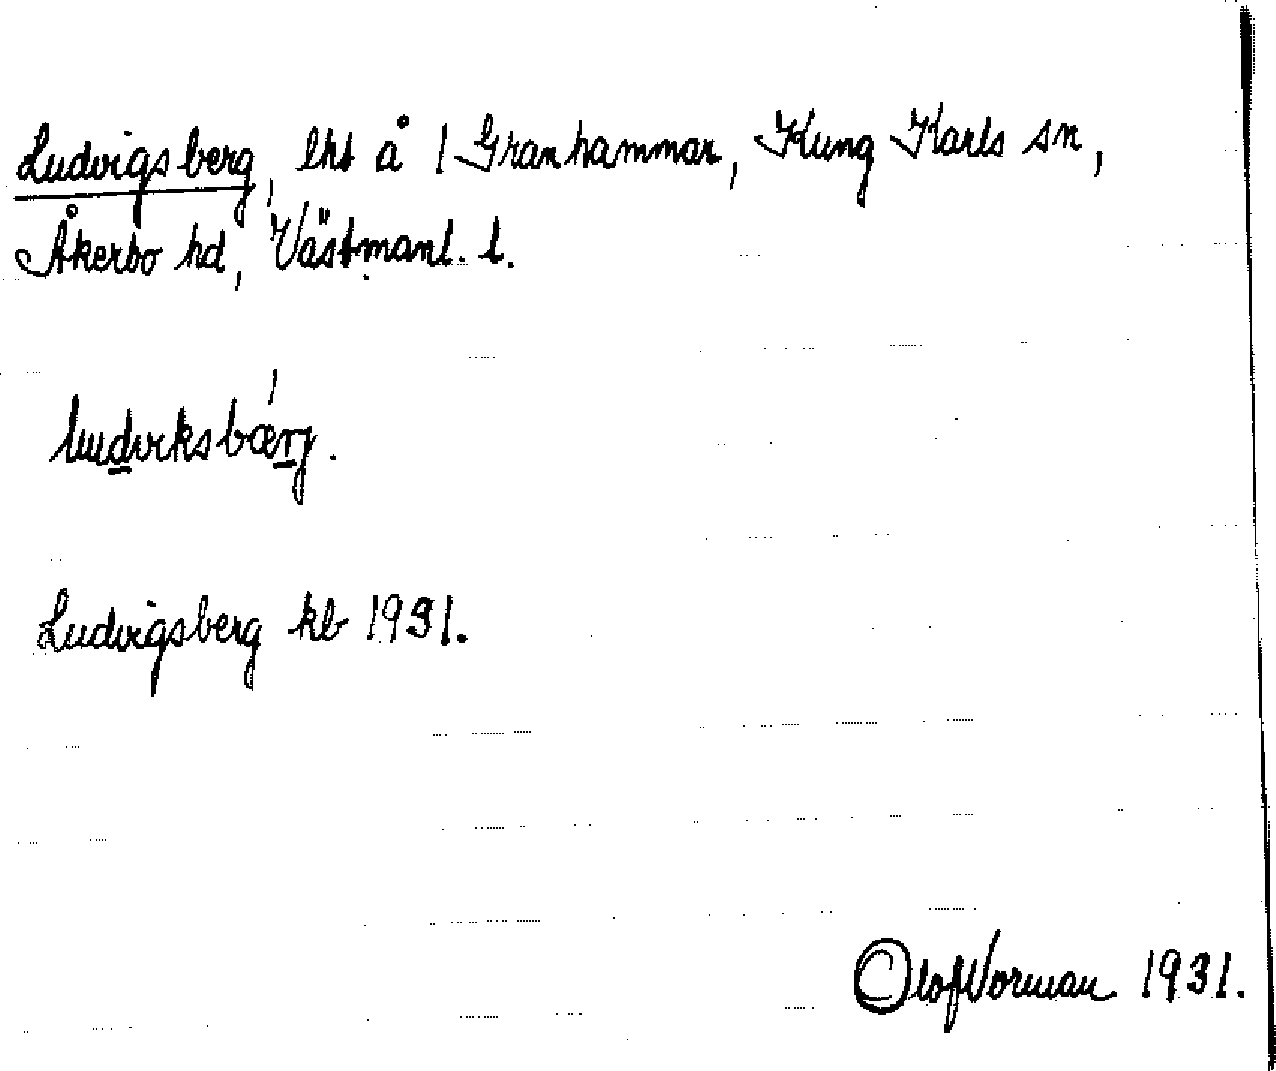 Ludvigsberg, lht å 1 Granhammar, Kung Karls sn,
Åkerbo hd, Västmanl. l.
Ludvigsberg kb 1931.
Olof Norman 1931.